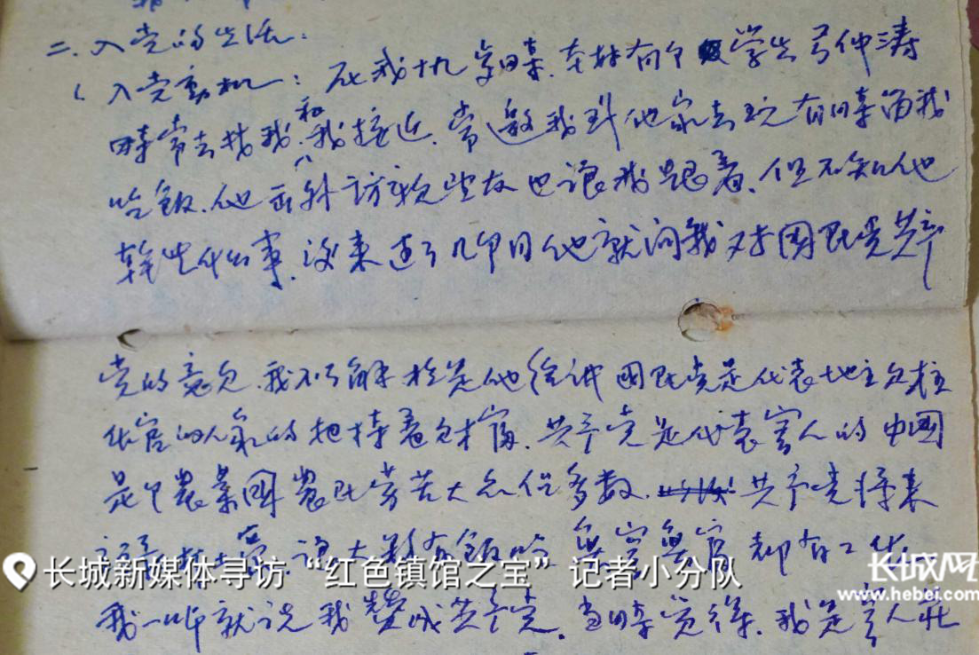 二.入党的生活.
入党动机:在我十九岁时.本村有个学生弓仲涛
时常去找我和我接近.常邀我到他家去玩有时留我
吃饭.他出外访亲望友也让我跟着.但不知他
干些什么事.后来过了几个月他就问我对国民党共产
党的意见.我不了解於是他给讲国民党是代表地主
的把持着财富.共产党是代表穷人的中国
是个农业国农民劳苦大众占多数.共产党将来
让大家有饭吃 无穷无富都有工作
我一听就说我赞成共产党.当时觉得.我是穷人
长城新媒体寻访“红色镇馆之宝”记者小分队
长城网
www.hebei.com